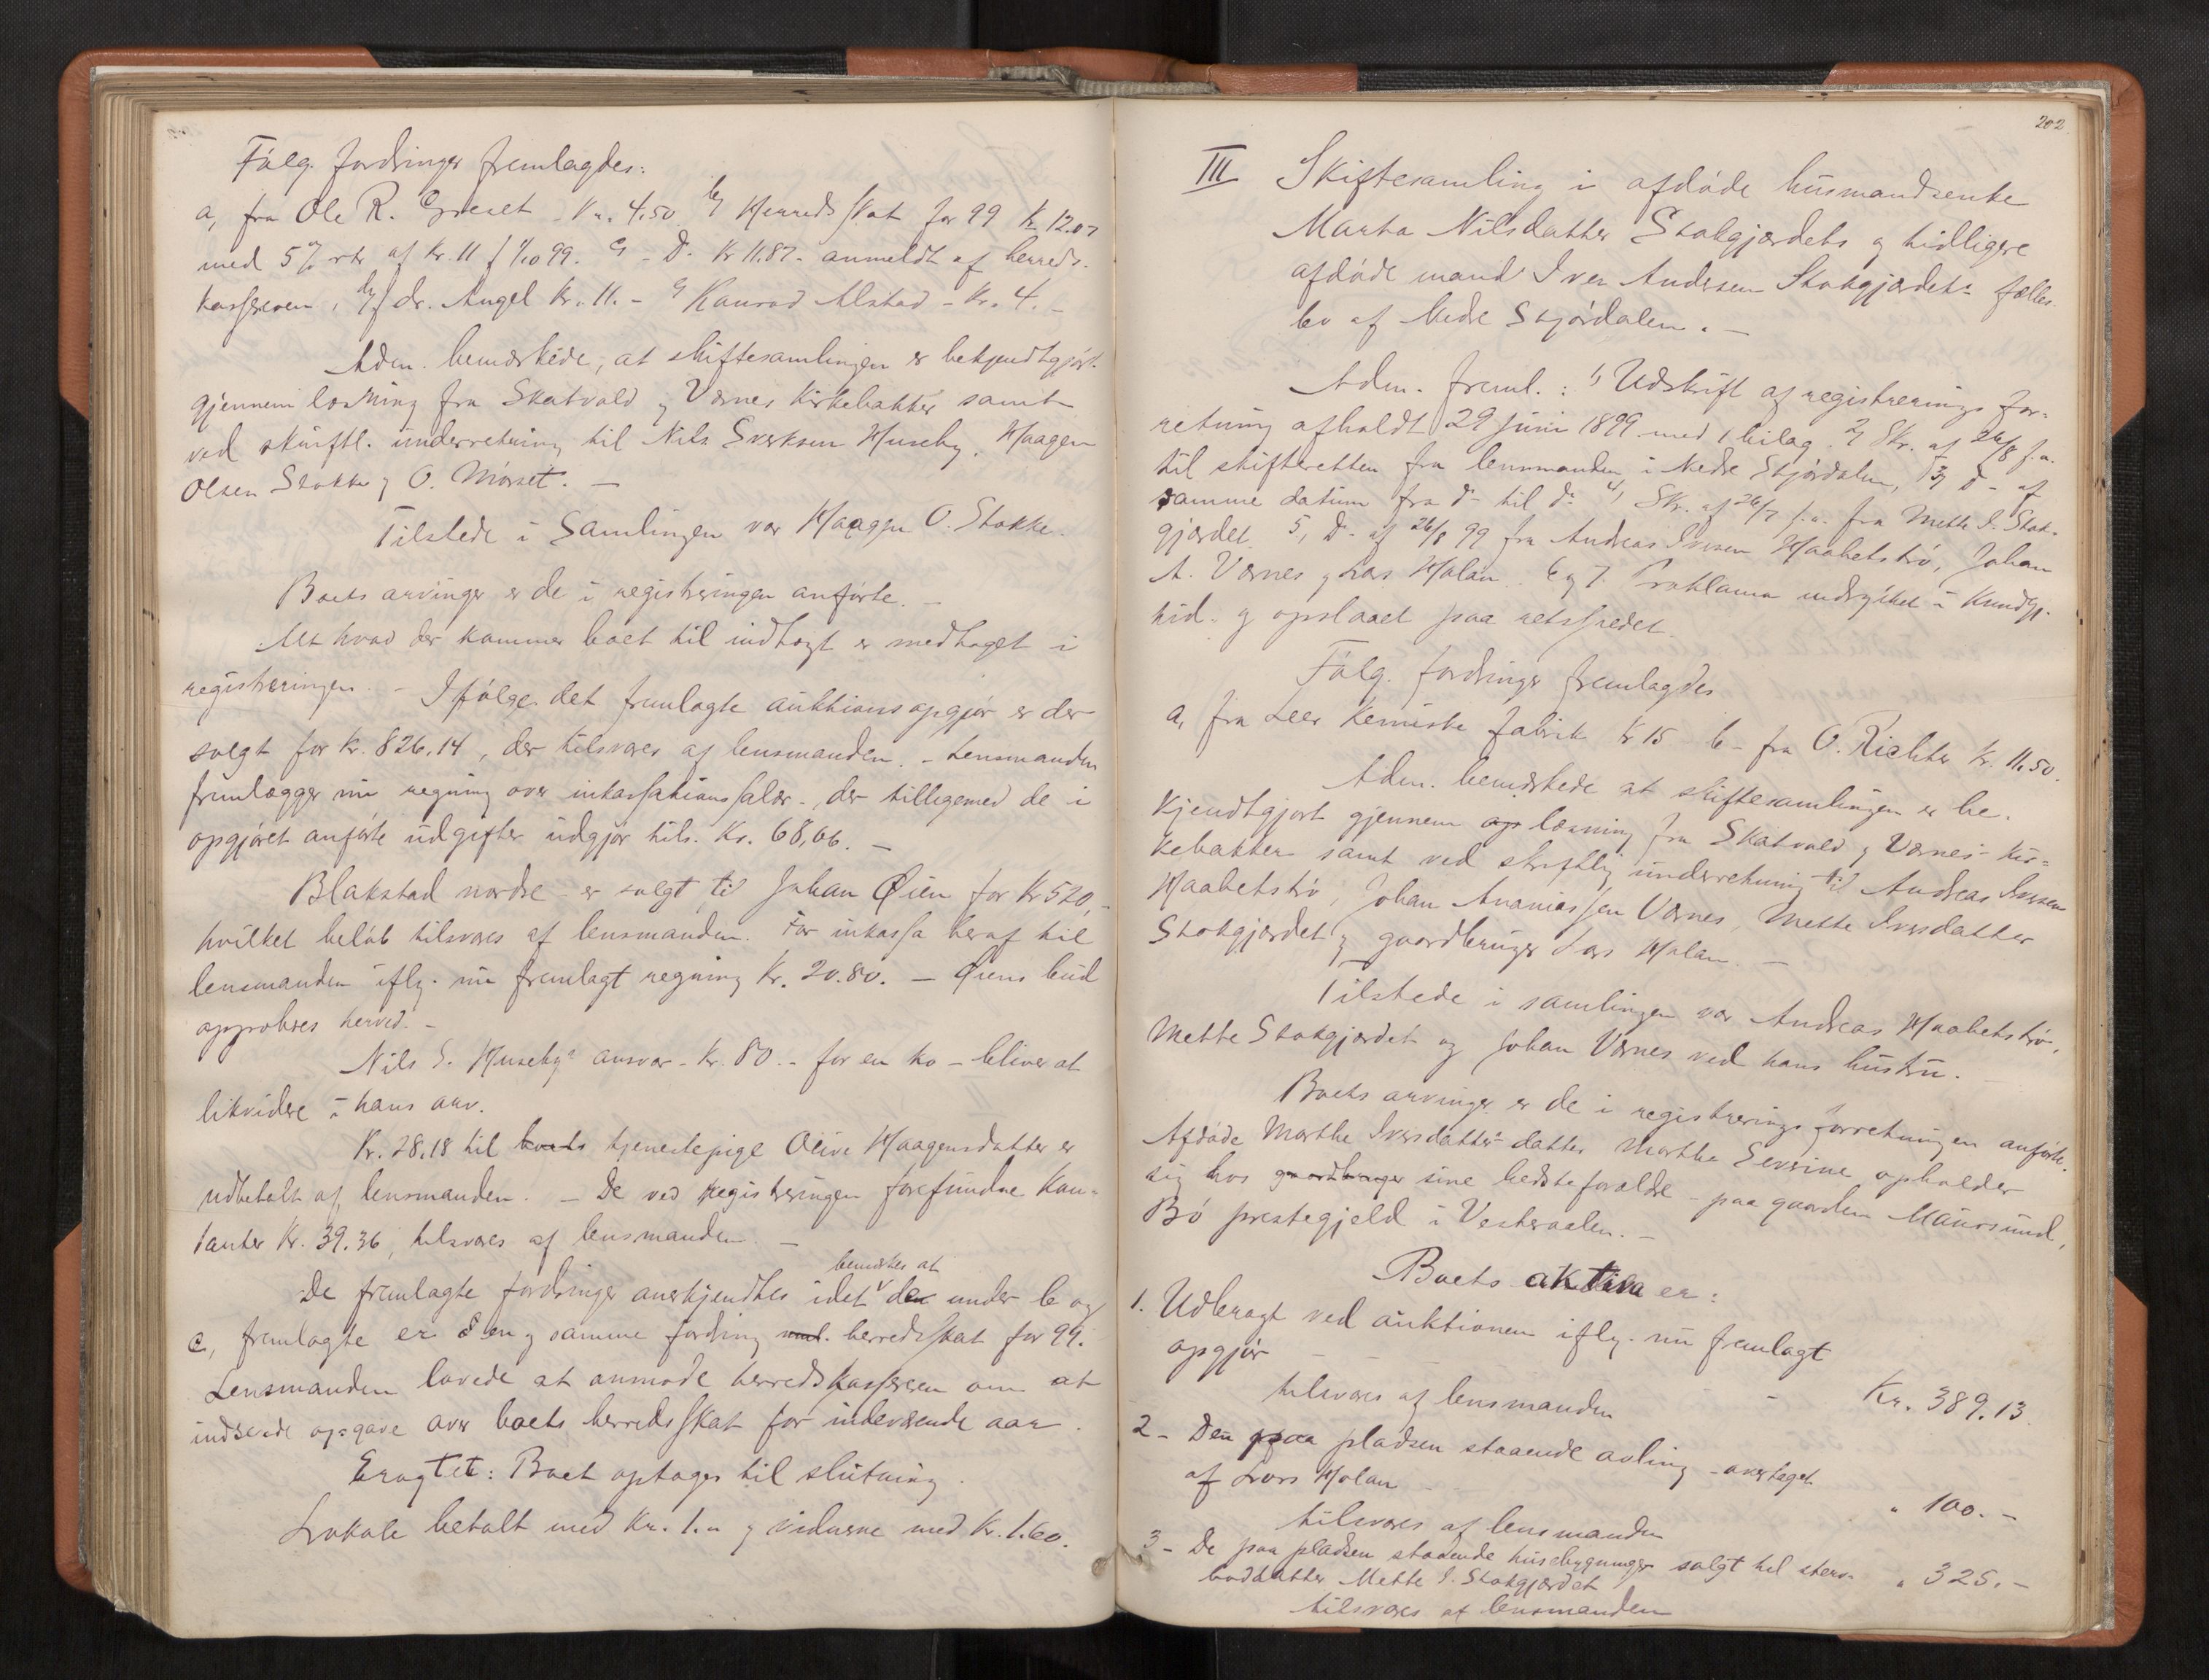 Følg. fordringer fremlagdes:
a, fra Ole R. Græset Kr. 4.50 b, Herredsskat for 99 Kr 12.07
med 5% rtr af Kr. 11 f 1/10 99. c, D. Kr 11.87. anmeldt af herreds-
kassereren, d, dr. Angel Kr. 11. - e, Konrad Alstad - Kr. 4. -
Adm. bemærkede, at skiftesamlingen er bekjendtgjort
gjennem læsning fra Skatvold og Værnes Kirkebakker samt
ved skriftl. underretning til Nils Sverksen Huseby, Haagen
Olsen Stokke og O. Mørset. -
Tilstede i Samlingen var Haagen O. Stokke.
Boets arvinger er de i registreringen anførte. -
Alt hvad der kommer boet til indtægt er medtaget i
registreringen. - Ifølge det fremlagte auktionsopgjør er der
solgt for Kr. 826.14, der tilsvares af lensmanden. - Lensmanden
fremlægger nu regning over inkassationssalær - der tilligemed de i
opgjøret anførte udgifter udgjør tils. Kr. 68,66. -
Blakstad nordre - er solgt til Johan Øien for Kr 520, -
hvilket beløb tilsvares af lensmanden. For inkasso heraf til
lensmanden iflg. nu fremlagt regning Kr. 20.80. - Øiens bud
approberes herved. -
Nils S. Husebys ansvar - Kr. 80. - for en ko - bliver at
likvidere i hans arv.
Kr. 28.18 til boets tjenestepige Olive Haagensdatter er
udbetalt af lensmanden. - De ved registreringen forefundne Kon-
tanter Kr. 39.36, tilsvares af lensmanden. -
bemærkes at
De fremlagte fordringer anerkjendtes idet den under b og
c, fremlagte er den og samme fordring herredsskat for 99.
Lensmanden lovede at anmode herredskassereren om at
indsende opgave over boets herredsskat for indeværende aar.
Eragtet: Boet optages til slutning.
Lokale betalt med Kr. 1.- og vidnerne med Kr. 1.60.
202
III Skiftesamling i afdøde husmandsenke
Marta Nilsdatter Stokgjærdets og tidligere
afdøde mand Iver Andersen Stokgjærdets fælles-
bo af Nedre Stjørdalen. -
Adm. freml.: 1, Udskrift af registreringsfor-
retning afholdt 29 juni 1899 med 1 bilag. 2, Skr. af 26/8 f.a.
til skifteretten fra lensmanden i Nedre Stjørdalen, 3, D. af
samme datum fra d. til d. 4, Skr. af 26/7 f.a. fra Mette I. Stok-
gjærdet. 5, D. af 26/8 99 fra Andreas Iversen Haabetstrø, Johan
A. Værnes og Lars Holan. 6 og 7. Proklama indrykket i Kundgj.
tid. og opslaaet paa retsstedet.
Følg. fordringer fremlagdes
a, fra Leer Kemiske fabrik Kr 15 b - fra O. Richter Kr. 11.50.
Adm. bemærkede at skiftesamlingen er be-
kjendtgjort gjennem op læsning fra Skatvold og Værnes - kir-
kebakker samt ved skriftlig underretning til Andreas Iversen
Haabetstrø, Johan Ananiassen Værnes, Mette Iversdatter
Stokgjærdet og gaardbruger Lars Holan. -
Tilstede i samlingen var Andreas Haabetstrø,
Mette Stokgjærdet og Johan Værnes ved hans hustru. -
Boets arvinger er de i registreringsforretningen anførte.
Afdøde Marthe Iversdatters datter Marthe Severine opholder
sig hos gaardbruger sine bedsteforældre - paa gaarden Maursund,
Bø præstegjeld i Vesteraalen. -
Boets aktiva er:
1. Udbragt ved auktionen iflg. nu fremlagt
opgjør - - - - Kr. 389.13.
tilsvares af lensmanden
2 - Den paa pladsen staaende avling - overtaget
af Lars Holan - " 100. -
tilsvares af lensmanden
3 - De paa pladsen staaende husebygninger solgt til sterv-
boddatter Mette I. Stokgjærdet " 325. -
tilsvares af lensmanden